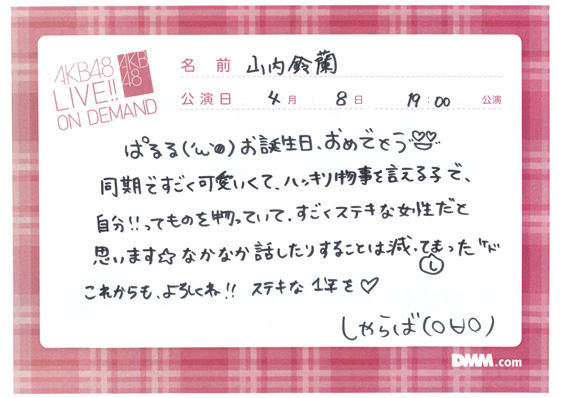 AKB48
LIVE!!
ON DEMAND
AKB
48
名 前 山内鈴蘭
公演日 4月 8日 19:00 公演
ぱるる('ω●)お誕生日、おめでとう
同期ですごく可愛いくて、ハッキリ物事を言える子で、
自分!!ってものを物っていて、すごくステキな女性だと
思います☆なかなか話したりすることは減ってまったケド
し
これからも、よろしくね!! ステキな1年を♡
しゃらば(O∀O)
DMM.com